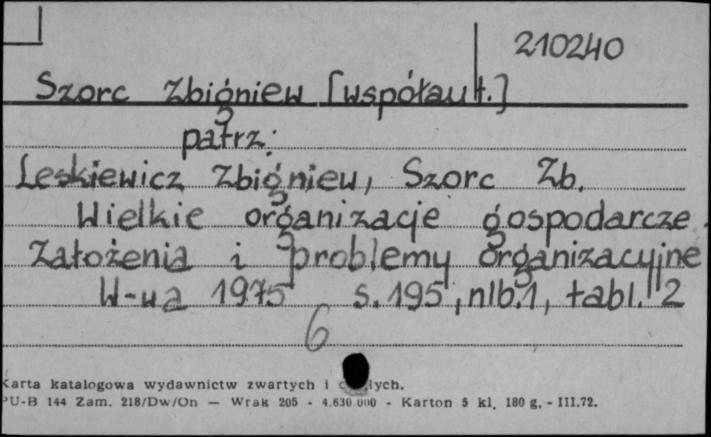 210240
Szorc Zbigniew [współaut.]
patrz:
Leskiewicz Zbigniew, Szorc Zb.
Wielkie organizacje gospodarcze.
Założenia i problemy organizacyjne
W-wa 1975 s. 195, nlb. 1, tabl. 2
6
Karta katalogowa wydawnictw zwartych i ciągłych.
PU-B 144 Zam. 218/Dw/On — Wrak 205 - 4.630.000 - Karton 5 kl. 180 g. - III.72.